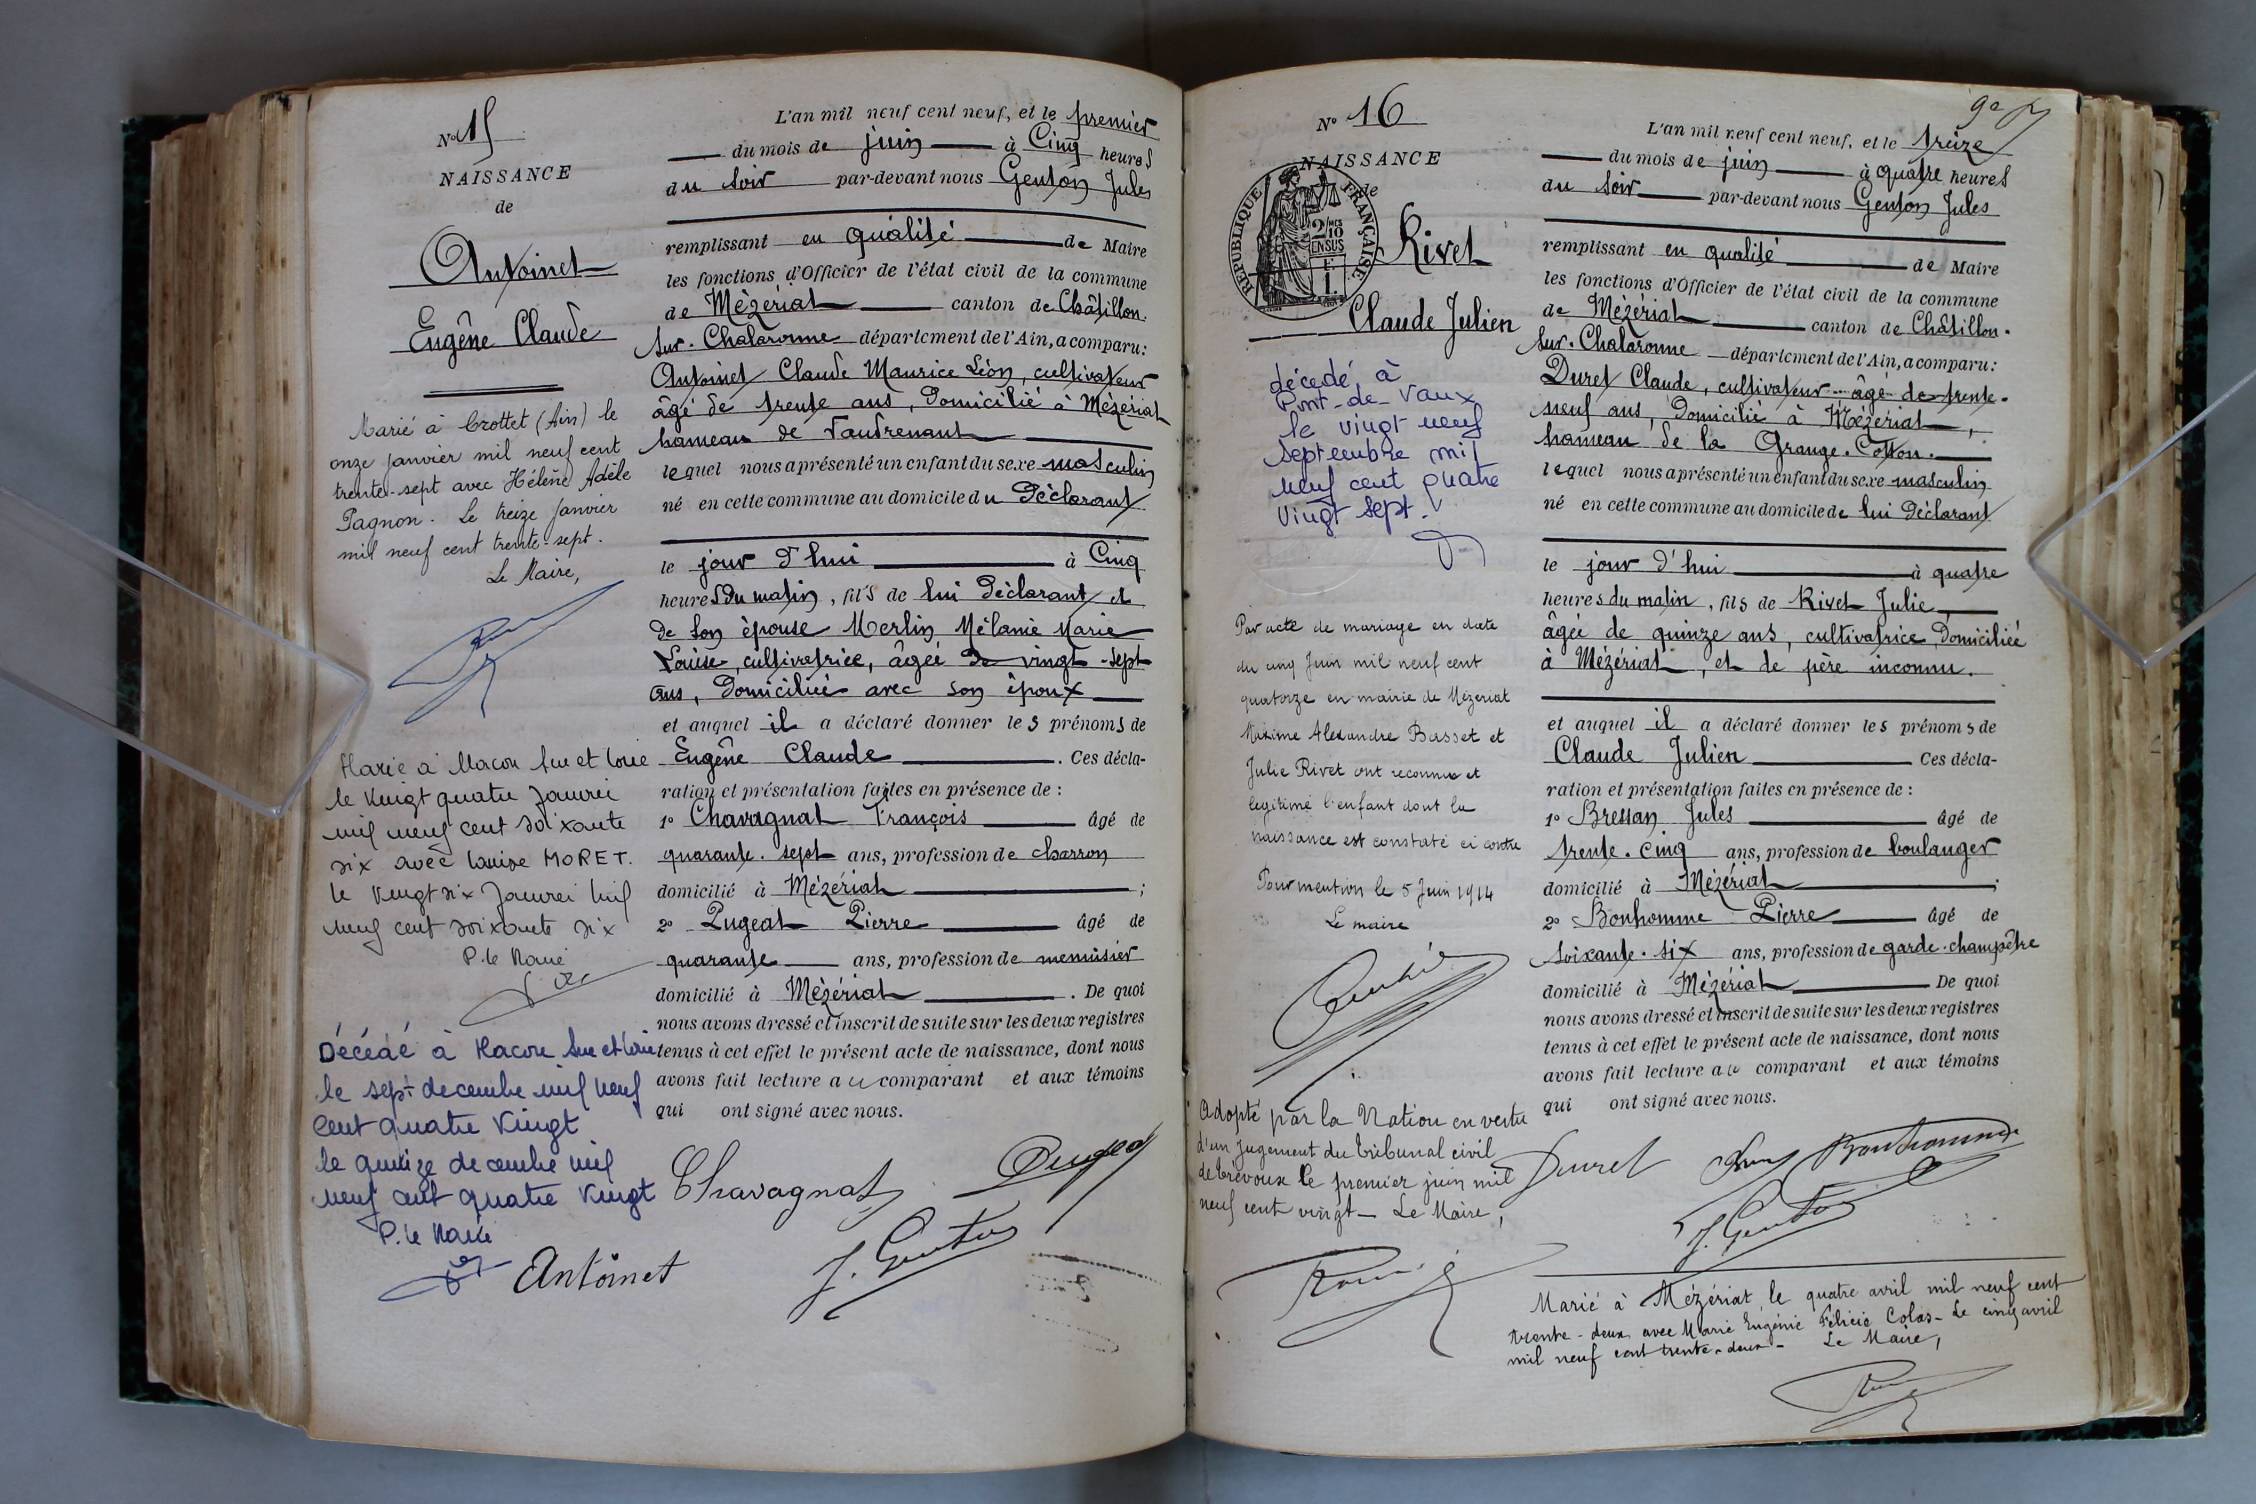 No 15
NAISSANCE
de
Antoinet
Eugêne Claude
Marié à Crottet (Ain) le
onze janvier mil neuf cent
trente-sept avec Hélène Adèle
Pagnon. Le treize janvier
mil neuf cent trente-sept.
Le Maire,
Marié à Macon Sne et Loire
le vingt quatre Janvier
mil neuf cent soixante
six avec Louise MORET.
le vingt six Janvier mil
neuf cent soixante six
P. le Maire
Décédé à Macon Sne et Loire
le sept decembre mil neuf
cent quatre vingt
le quinze decembre mil
neuf cent quatre vingt
P. le Maire
L'an mil neuf cent neuf, et le premier
du mois de juin à Cinq heures
du soir par-devant nous Genton Jules
remplissant en qualité de Maire
les fonctions d'Officier de l'état civil de la commune
de Mézériat canton de Châtillon.
sur-Chalaronne département de l'Ain, a comparu:
Antoinet Claude Maurice Léon, cultivateur
âgé de trente ans, domicilié à Mézériat
hameau de Vaudrenant
lequel nous a présenté un enfant du sexe masculin
né en cette commune au domicile du déclarant
le jour d'hui à Cinq
heures du matin, fils de lui déclarant et
de son épouse Merlin Mélanie Marie
Louise, cultivatrice, âgée de vingt-sept
ans, domiciliée avec son époux
et auquel il a déclaré donner les prénoms de
Eugêne Claude. Ces décla-
ration et présentation faites en présence de :
1o Chavagnat François âgé de
quarante-sept ans, profession de charron
domicilié à Mézériat ;
2o Pugeat Pierre âgé de
quarante ans, profession de menuisier
domicilié à Mézériat. De quoi
nous avons dressé et inscrit de suite sur les deux registres
tenus à cet effet le présent acte de naissance, dont nous
avons fait lecture au comparant et aux témoins
qui ont signé avec nous.
Chavagnat Pugeat
Antoinet J. Genton
No 16
NAISSANCE
de
RÉPUBLIQUE FRANÇAISE
2/10 EN SUS
Rivet
Claude Julien
décédé à
Pont-de-Vaux
le vingt neuf
septembre mil
neuf cent quatre
vingt sept.
Par acte de mariage en date
du cinq Juin mil neuf cent
quatorze en mairie de Mézeriat
Maxime Alexandre Basset et
Julie Rivet ont reconnu et
legitimé l'enfant dont la
naissance est constaté ci contre
Pour mention le 5 Juin 1914
Le maire
Adopté par la Nation en vertu
d'un jugement du tribunal civil
de Trévoux le premier juin mil
neuf cent vingt- Le Maire,
L'an mil neuf cent neuf, et le treize
du mois de juin à quatre heures
du soir par-devant nous Genton Jules
remplissant en qualité de Maire
les fonctions d'Officier de l'état civil de la commune
de Mézériat canton de Châtillon-
sur-Chalaronne département de l'Ain, a comparu:
Duret Claude, cultivateur âgé de trente-
neuf ans, domicilié à Mézériat,
hameau de la Grange-Cotton.
lequel nous a présenté un enfant du sexe masculin
né en cette commune au domicile de lui déclarant
le jour d'hui à quatre
heures du matin, fils de Rivet Julie,
âgée de quinze ans, cultivatrice, domiciliée
à Mézériat, et de père inconnu.
et auquel il a déclaré donner les prénoms de
Claude Julien Ces décla-
ration et présentation faites en présence de :
1o Bressan Jules âgé de
trente-cinq ans, profession de boulanger
domicilié à Mézériat ;
2o Bonhomme Pierre âgé de
soixante-six ans, profession de garde-champêtre
domicilié à Mézériat De quoi
nous avons dressé et inscrit de suite sur les deux registres
tenus à cet effet le présent acte de naissance, dont nous
avons fait lecture au comparant et aux témoins
qui ont signé avec nous.
Duret Bonhomme
J. Genton
Marié à Mézériat, le quatre avril mil neuf cent
trente-deux avec Marie Eugénie Félicie Colas- Le cinq avril
mil neuf cent trente-deux- Le Maire,